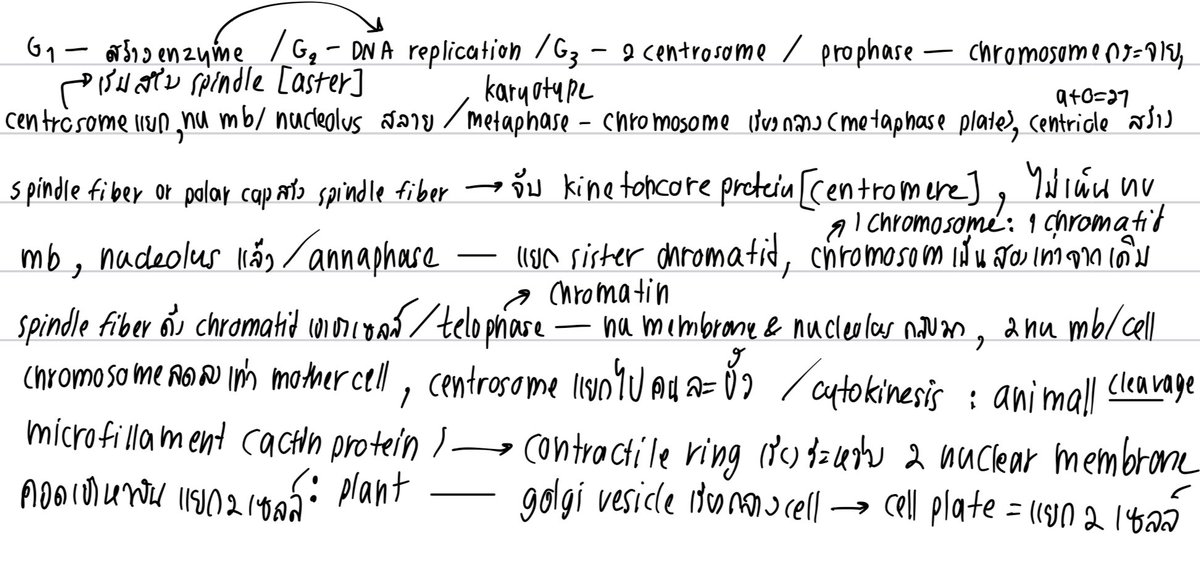 G1 — สร้าง enzyme / G2 - DNA replication / G3 - 2 centrosome / prophase — chromosome กระจาย,
→ เริ่มสร้าง spindle [aster]
karyotype
9+0=27
centrosome แยก, nu mb/ nucleolus สลาย / metaphase - chromosome เรียงกลาง (metaphase plate), centriole สร้าง
spindle fiber or polar cap สร้าง spindle fiber → จับ kinetohcore protein [centromere], ไม่เห็น nu
1 chromosome: 1 chromatid
mb, nucleolus แล้ว / annaphase — แยก sister chromatid, chromosom เป็นสองเท่าจากเดิม
→ chromatin
spindle fiber ดึง chromatid เซลล์ / telophase — nu membrane & nucleolus กลับมา, 2 nu mb/cell
chromosome ลดลงเท่า mother cell, centrosome แยกไปคนละขั้ว / cytokinesis : animall cleavage
microfillament (actin protein) → contractile ring เรียงระหว่าง 2 nuclear membrane
คอด แยก 2 เซลล์ : plant — golgi vesicle เรียงกลาง cell → cell plate = แยก 2 เซลล์